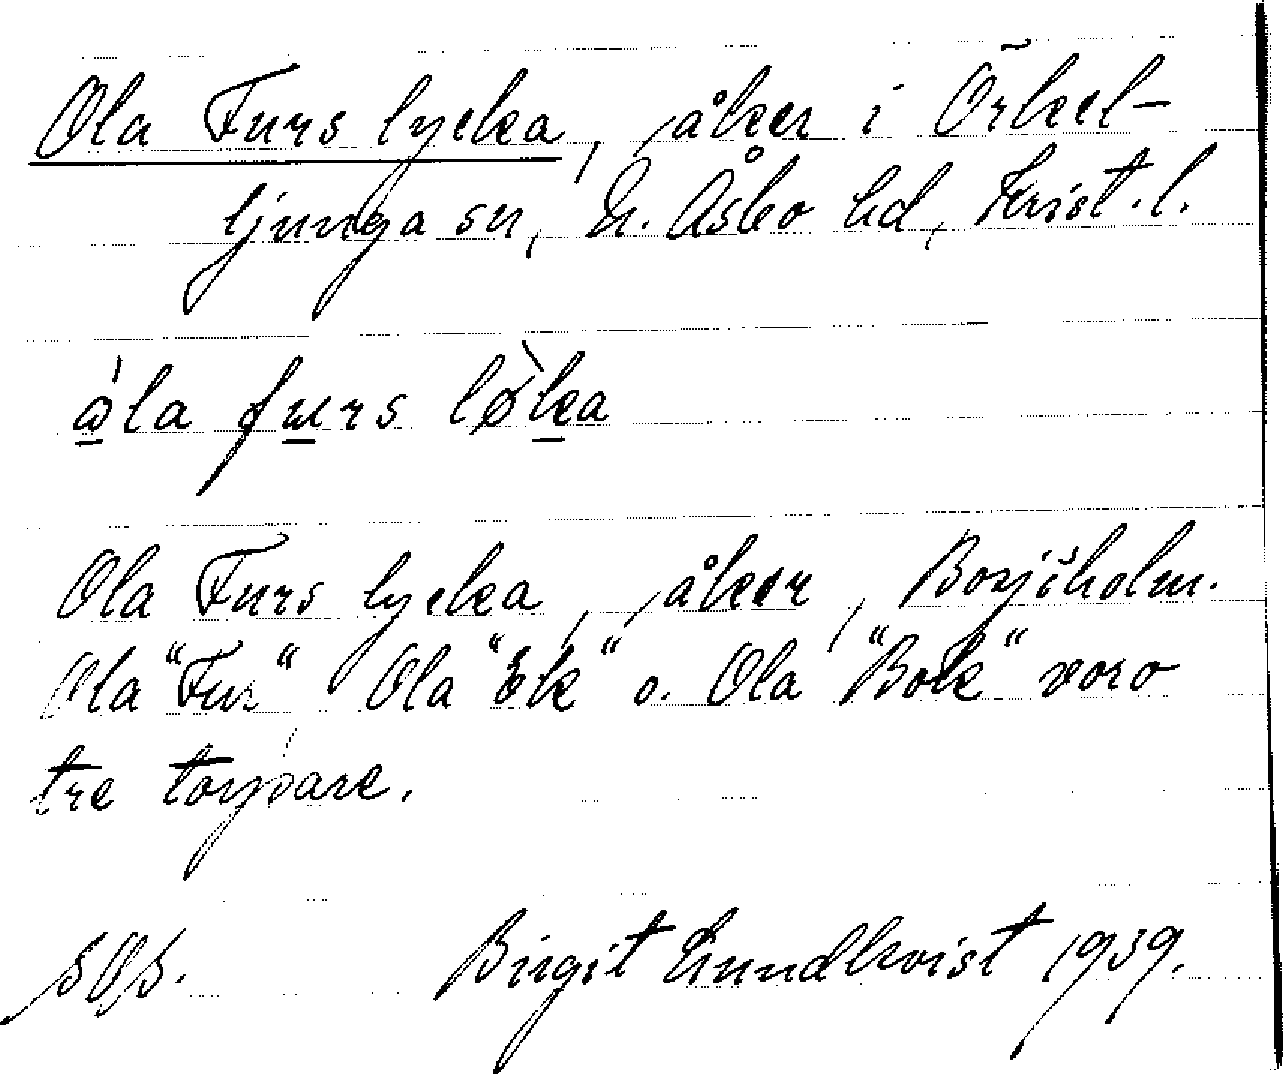 Ola Furs lycka, åker i Örkel-
ljunga sn, N. Åsbo hd, Krist. l.
åla furs løka
Ola Furs lycka, åker, Boxjiholm.
Ola "Fur" Ola "Ek" o. Ola "Bok" voro
tre torpare.
Birgit Lundkvist 1939.